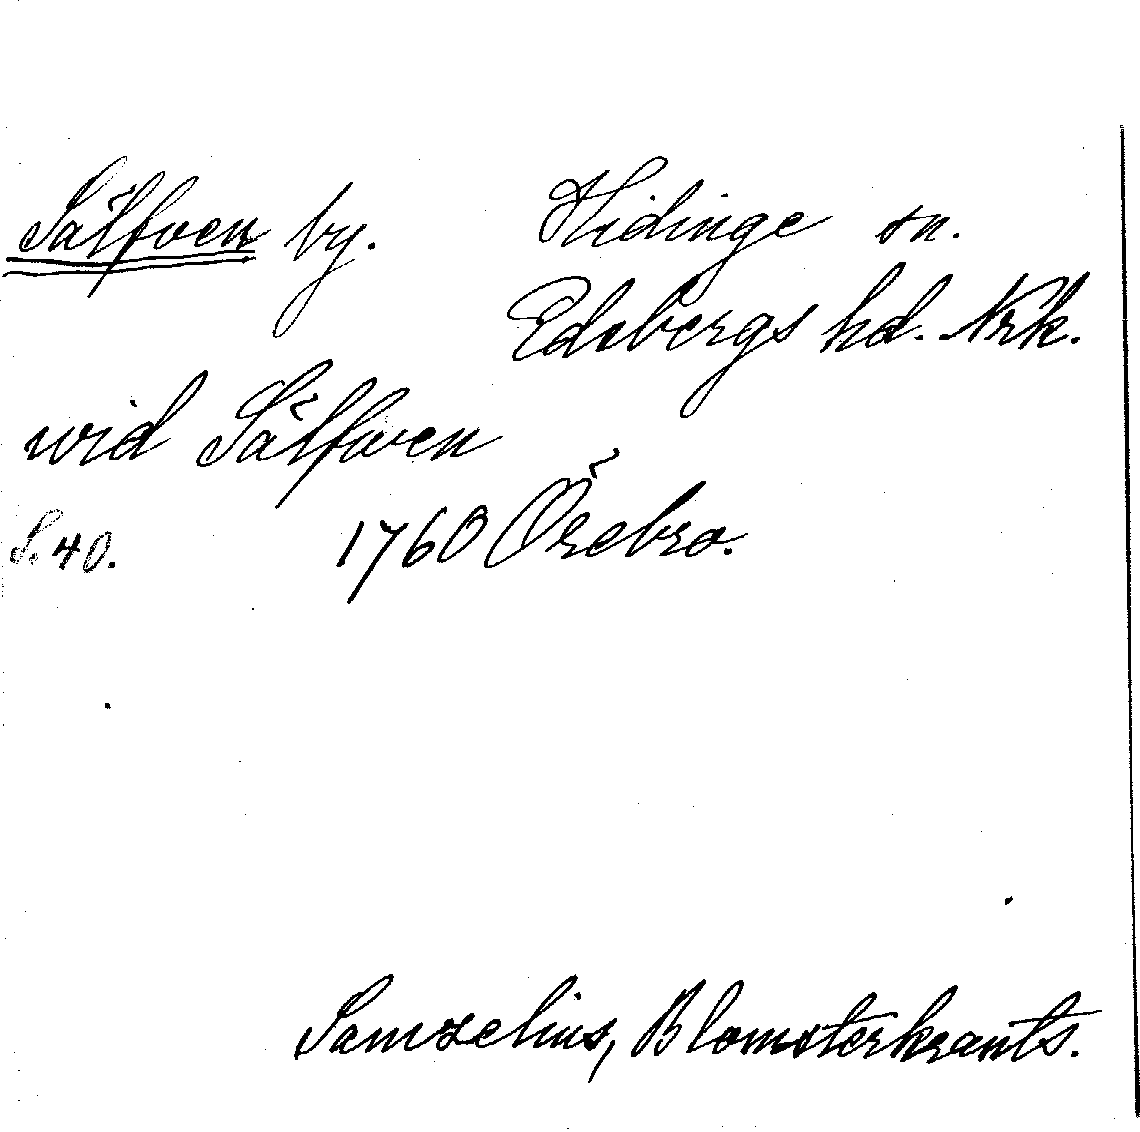 Sälfven by. Hidinge sn.
Edsbergs hd. Nrk.
wid Sälfwen
S. 40. 1760 Örebro.
Samzelius, Blomsterkrants.